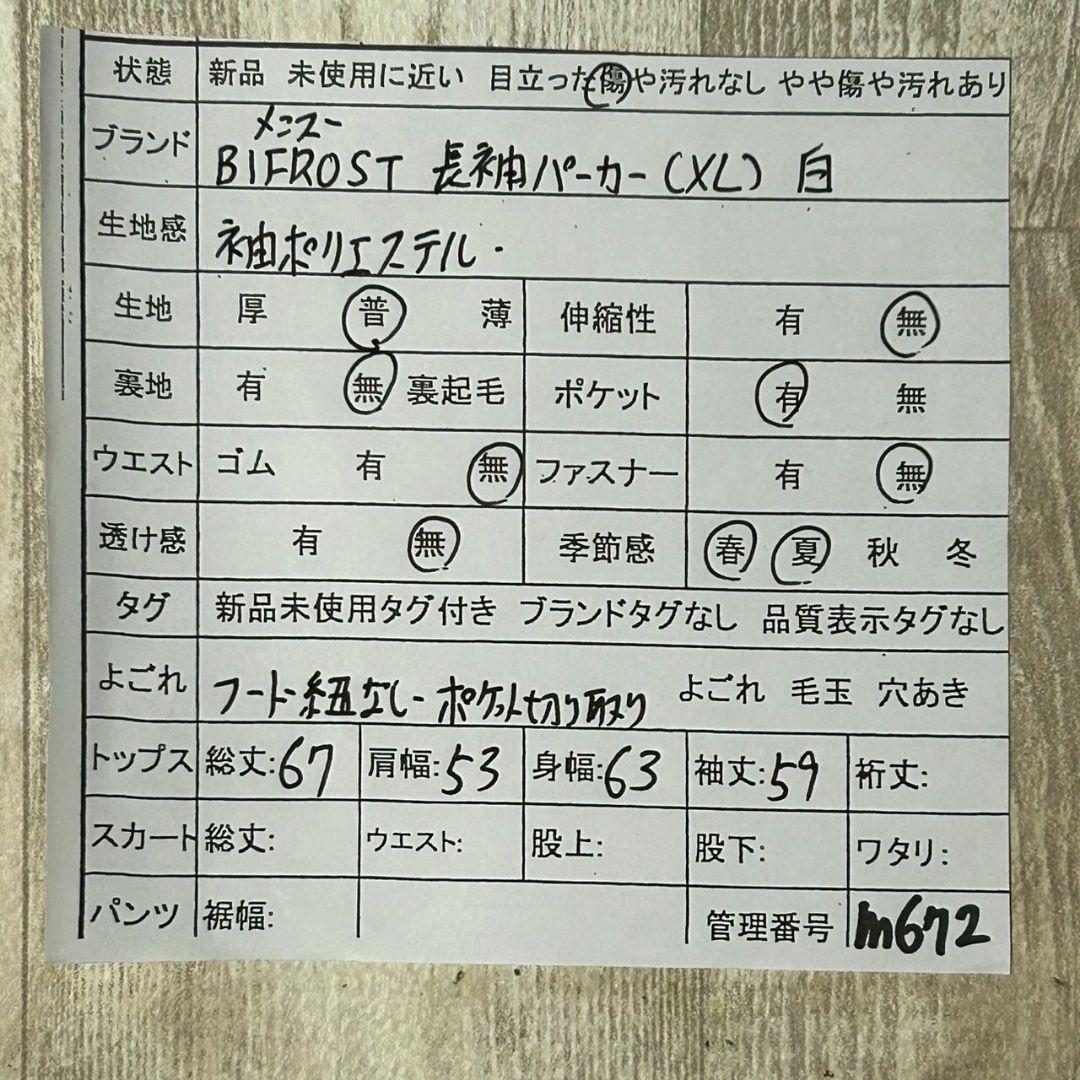 状態 新品 未使用に近い 目立った傷や汚れなし やや傷や汚れあり
メンズ
ブランド BIFROST 長袖パーカー(XL) 白
生地感 袖ポリエステル.
生地 厚 普 薄 伸縮性 有 無
裏地 有 無 裏起毛 ポケット 有 無
ウエスト ゴム 有 無 ファスナー 有 無
透け感 有 無 季節感 春 夏 秋 冬
タグ 新品未使用タグ付き ブランドタグなし 品質表示タグなし
よごれ フード紐なし-ポケット切り取り よごれ 毛玉 穴あき
トップス 総丈:67 肩幅:53 身幅:63 袖丈:59 裄丈:
スカート 総丈: ウエスト: 股上: 股下: ワタリ:
パンツ 裾幅: 管理番号 m672